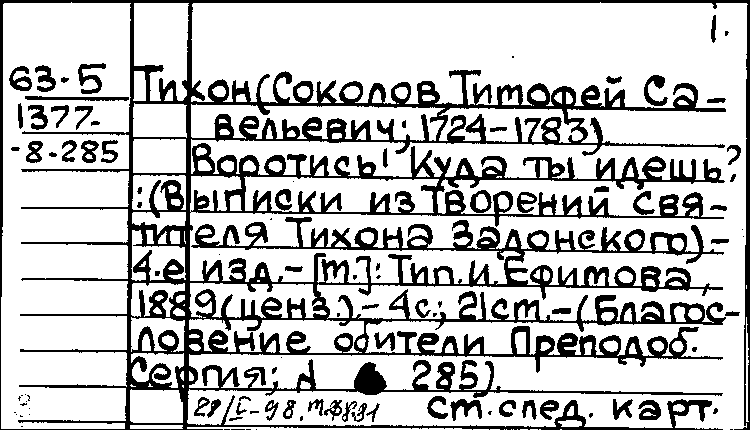 1.
63-5
1377-
-8-285
Тихон (Соколов, Тимофей Са-
вельевич; 1724-1783).
Воротись! Куда ты идешь?
: (Выписки из творений свя-
тителя Тихона Задонского) -
4-е изд. - [М.]: Тип. И. Ефимова,
1889 (ценз.). - 4 с.; 21 см. - (Благос-
ловение обители Преподоб.
Сергия; № 285).
См. след. карт.